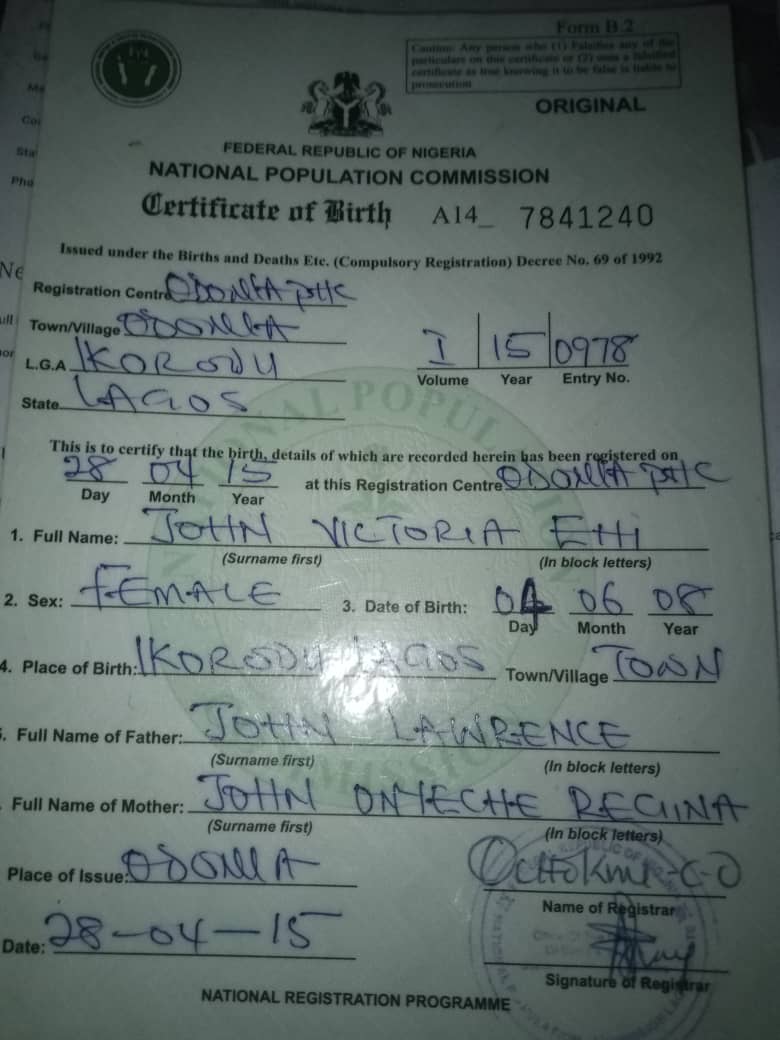 Form B.2
Caution: Any person who (1) Falsifies any of the
particulars on this certificate or (2) uses a falsified
certificate as true knowing it to be false is liable to
prosecution
ORIGINAL
FEDERAL REPUBLIC OF NIGERIA
NATIONAL POPULATION COMMISSION
Certificate of Birth A14_ 7841240
Issued under the Births and Deaths Etc. (Compulsory Registration) Decree No. 69 of 1992
Registration Centre ODONLA PHC
Town/Village ODONLA
L.G.A IKORODU
State LAGOS
I 15 0978
Volume Year Entry No.
This is to certify that the birth, details of which are recorded herein has been registered on
28 04 15 at this Registration Centre ODONLA PHC
Day Month Year
1. Full Name: JOHN VICTORIA EHI
(Surname first) (In block letters)
2. Sex: FEMALE 3. Date of Birth: 04 06 08
Day Month Year
4. Place of Birth: IKORODU LAGOS Town/Village TOWN
. Full Name of Father: JOHN LAWRENCE
(Surname first) (In block letters)
Full Name of Mother: JOHN ONYECHE REGINA
(Surname first) (In block letters)
Place of Issue: ODONLA
Name of Registrar
Date: 28-04-15
Signature of Registrar
NATIONAL REGISTRATION PROGRAMME